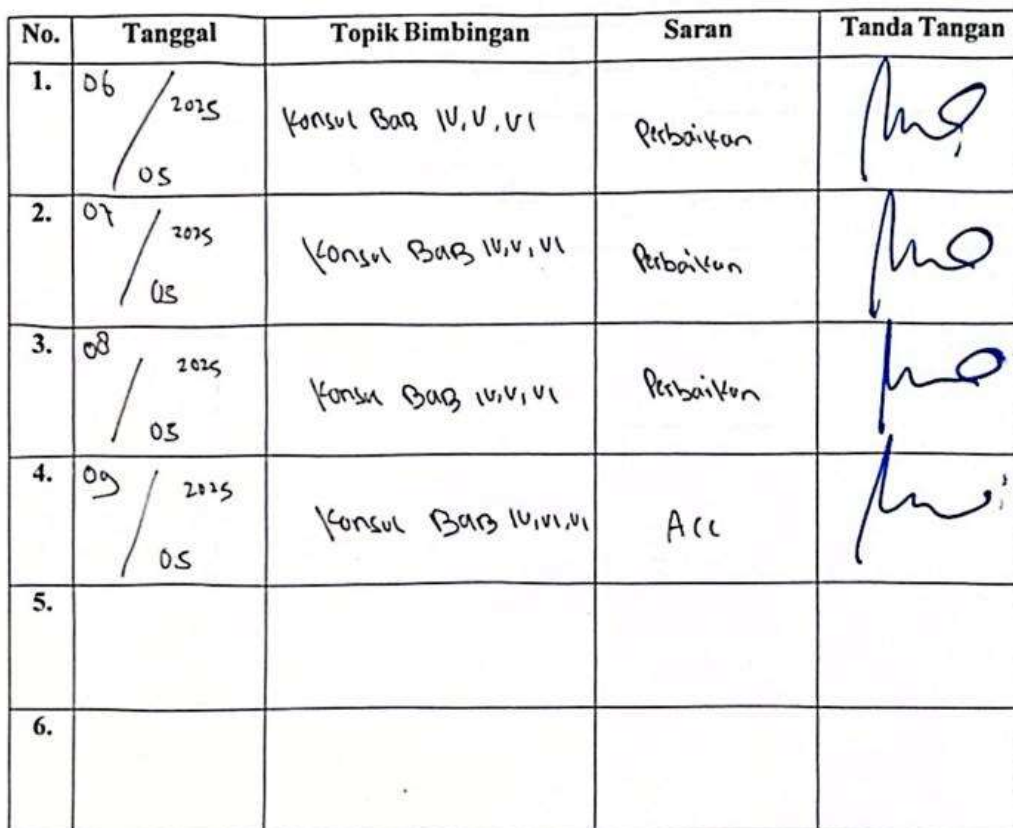 No. Tanggal Topik Bimbingan Saran Tanda Tangan
1. 06 / 05 2025 Konsul BAB IV, V, VI Perbaikan
2. 07 / 05 2025 Konsul BAB IV, V, VI Perbaikan
3. 08 / 05 2025 Konsul BAB IV, V, VI Perbaikan
4. 09 / 05 2025 Konsul BAB IV, VI, VI Acc
5.
6.